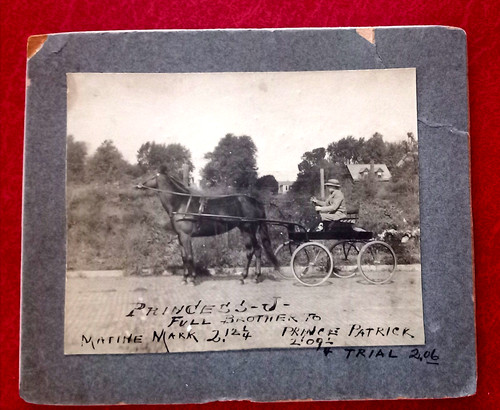 PRINCESS-J-
FULL BROTHER TO
MATINE MARK 2,12¼ PRINCE PATRICK
2'09½
& TRIAL 2,06